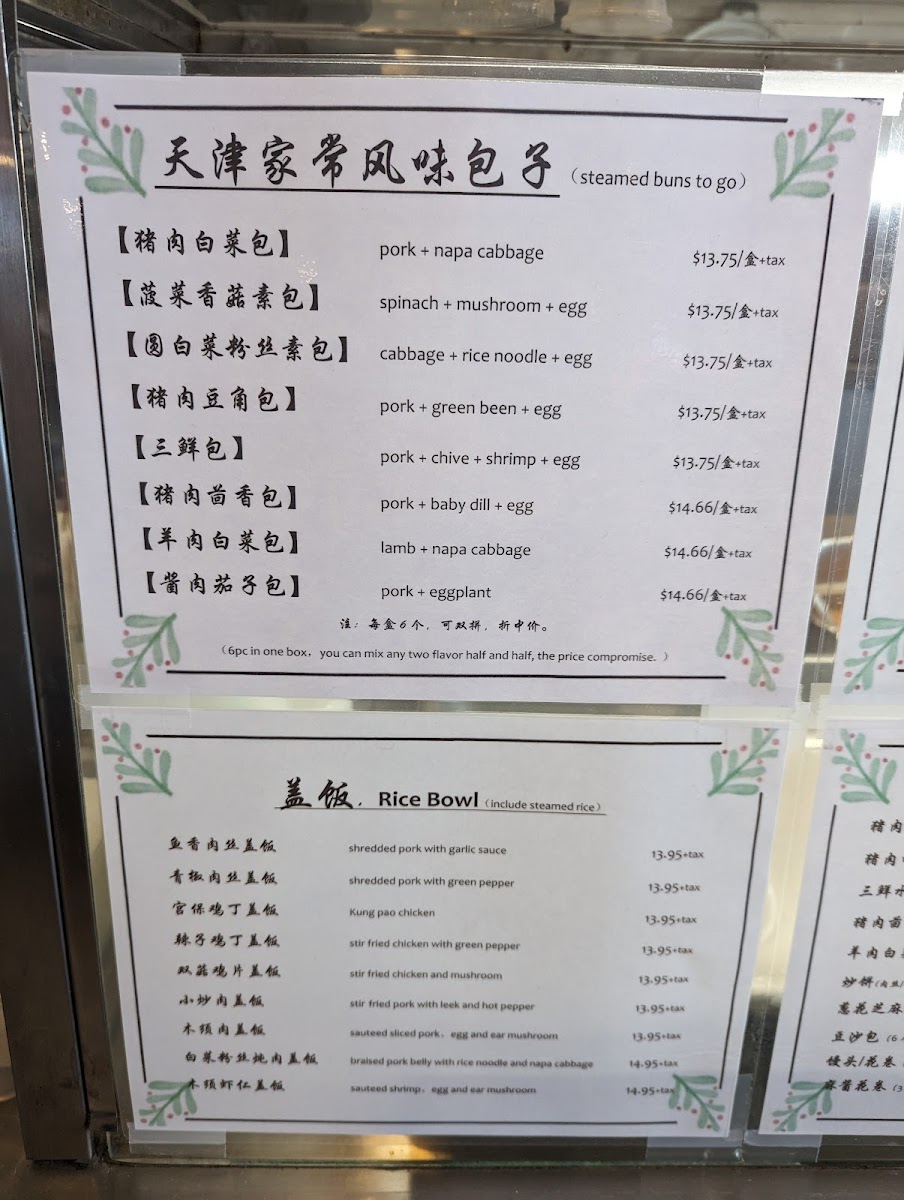 天津家常风味包子 (steamed buns to go)
【猪肉白菜包】 pork + napa cabbage $13.75/盒+tax
【菠菜香菇素包】 spinach + mushroom + egg $13.75/盒+tax
【圆白菜粉丝素包】 cabbage + rice noodle + egg $13.75/盒+tax
【猪肉豆角包】 pork + green been + egg $13.75/盒+tax
【三鲜包】 pork + chive + shrimp + egg $13.75/盒+tax
【猪肉茴香包】 pork + baby dill + egg $14.66/盒+tax
【羊肉白菜包】 lamb + napa cabbage $14.66/盒+tax
【酱肉茄子包】 pork + eggplant $14.66/盒+tax
注：每盒6个，可双拼，折中价。
(6pc in one box，you can mix any two flavor half and half, the price compromise. )
盖饭. Rice Bowl (include steamed rice)
鱼香肉丝盖饭 shredded pork with garlic sauce 13.95+tax
青椒肉丝盖饭 shredded pork with green pepper 13.95+tax
宫保鸡丁盖饭 Kung pao chicken 13.95+tax
辣子鸡丁盖饭 stir fried chicken with green pepper 13.95+tax
双菇鸡片盖饭 stir fried chicken and mushroom 13.95+tax
小炒肉盖饭 stir fried pork with leek and hot pepper 13.95+tax
木须肉盖饭 sauteed sliced pork、egg and ear mushroom 13.95+tax
白菜粉丝炖肉盖饭 braised pork belly with rice noodle and napa cabbage 14.95+tax
木须虾仁盖饭 sauteed shrimp、egg and ear mushroom 14.95+tax
猪肉
猪肉
三鲜水
猪肉茴
羊肉白
炒饼(肉丝/
葱花芝麻
豆沙包 (6
馒头/花卷
麻酱花卷 (3